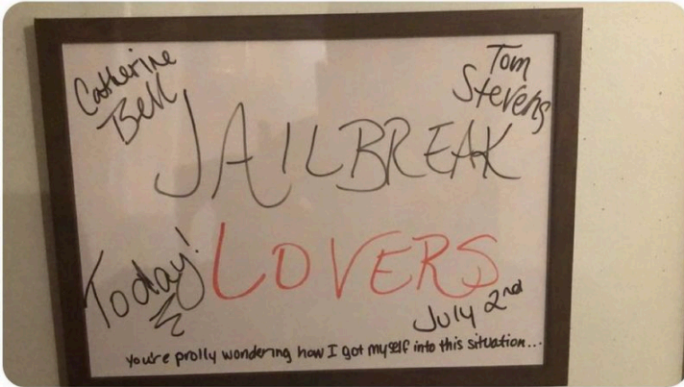 Catherine
Bell
Tom
Stevens
JAILBREAK
LOVERS
Today!
July 2nd
you're prolly wondering how I got myself into this situation...